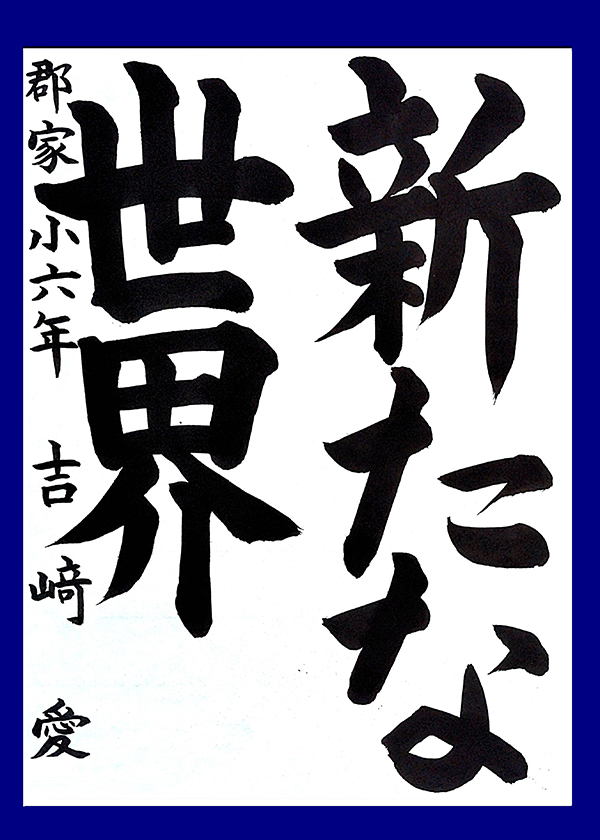 新たな
世界
郡家小六年 吉﨑 愛